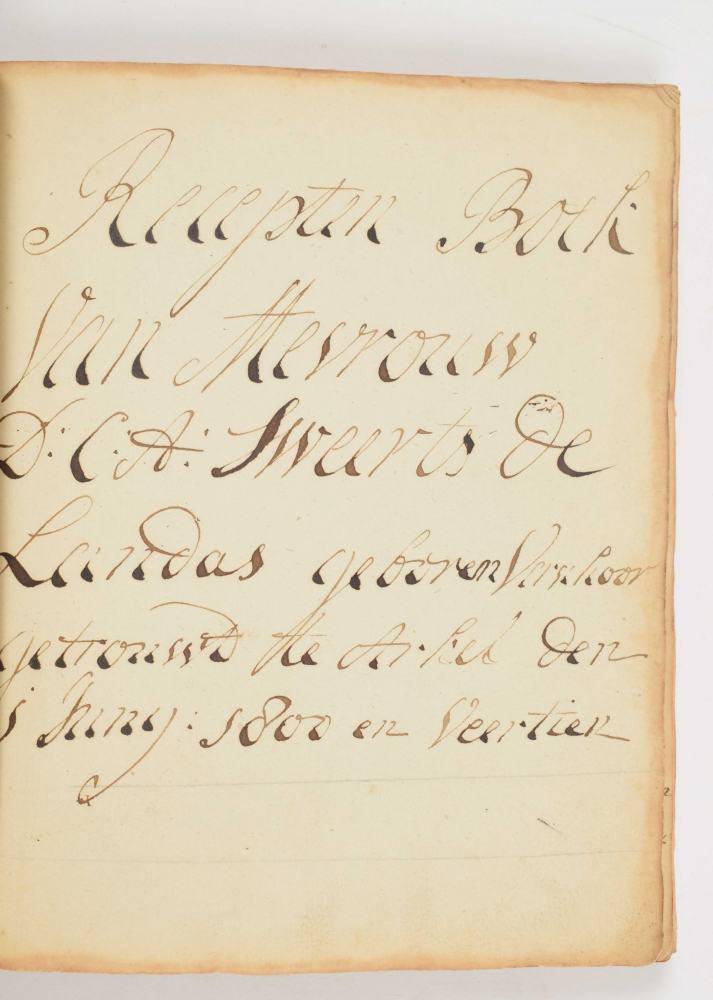 Recepten Boek
Van Mevrouw
D: C: A: Sweerts de
Landas geboren Verschoor
getrouwd te Arkel den
1 Juny: 1800 en Veertien